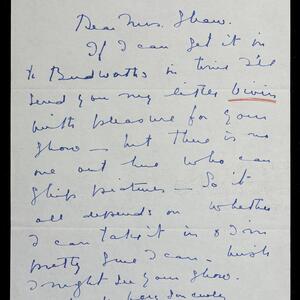 Dear Mrs. Shaw.
If I can get it in
to Budworths in time I'll
send you my little
with pleasure for your
show — but there is no
one out here who can
ship pictures — So it
all depends on whether
I can take it in & I'm
pretty sure I can - wish
I might see your show.